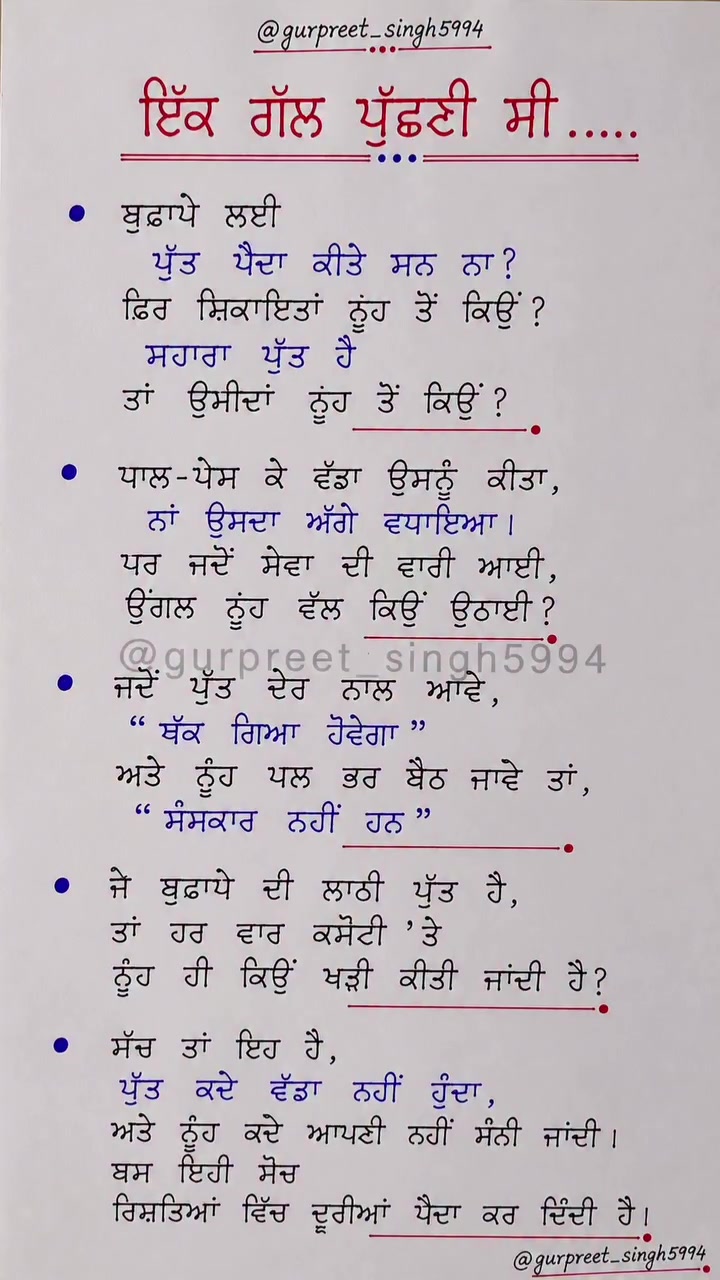 @gurpreet_singh5994
ਇੱਕ ਗੱਲ ਪੁੱਛਣੀ ਸੀ.....
ਬੁਫ਼ਾਪੇ ਲਈ
ਪੁੱਤ ਪੈਦਾ ਕੀਤੇ ਸਨ ਨਾ?
ਫ਼ਿਰ ਸ਼ਿਕਾਇਤਾਂ ਨੂੰਹ ਤੋਂ ਕਿਉਂ?
ਸਹਾਰਾ ਪੁੱਤ ਹੈ
ਤਾਂ ਉਸੀਦਾਂ ਨੂੰਹ ਤੋਂ ਕਿਉਂ?
ਧਾਲ-ਪੇਸ ਕੇ ਵੱਡਾ ਉਸਨੂੰ ਕੀਤਾ,
ਨਾਂ ਉਸਦਾ ਅੱਗੇ ਵਧਾਇਆ।
ਪਰ ਜਦੋਂ ਸੇਵਾ ਦੀ ਵਾਰੀ ਆਈ,
ਉਂਗਲ ਨੂੰਹ ਵੱਲ ਕਿਉਂ ਉਠਾਈ?
@gurpreet_singh5994
ਜਦੋਂ ਪੁੱਤ ਦੇਰ ਨਾਲ ਆਵੇ,
“ ਥੱਕ ਗਿਆ ਹੋਵੇਗਾ ”
ਅਤੇ ਨੂੰਹ ਪਲ ਭਰ ਬੈਠ ਜਾਵੇ ਤਾਂ,
“ ਸੰਸਕਾਰ ਨਹੀਂ ਹਨ ”
ਜੇ ਬੁਫ਼ਾਧੇ ਦੀ ਲਾਠੀ ਪੁੱਤ ਹੈ,
ਤਾਂ ਹਰ ਵਾਰ ਕਸੋਟੀ ’ਤੇ
ਨੂੰਹ ਹੀ ਕਿਉਂ ਖੜੀ ਕੀਤੀ ਜਾਂਦੀ ਹੈ?
ਸੱਚ ਤਾਂ ਇਹ ਹੈ,
ਪੁੱਤ ਕਦੇ ਵੱਡਾ ਨਹੀਂ ਹੁੰਦਾ,
ਅਤੇ ਨੂੰਹ ਕਦੇ ਆਪਣੀ ਨਹੀਂ ਸੰਨੀ ਜਾਂਦੀ।
ਬਸ ਇਹੀ ਸੋਚ
ਰਿਸ਼ਤਿਆਂ ਵਿੱਚ ਦੂਰੀਆਂ ਪੈਦਾ ਕਰ ਦਿੰਦੀ ਹੈ।
@gurpreet_singh5994